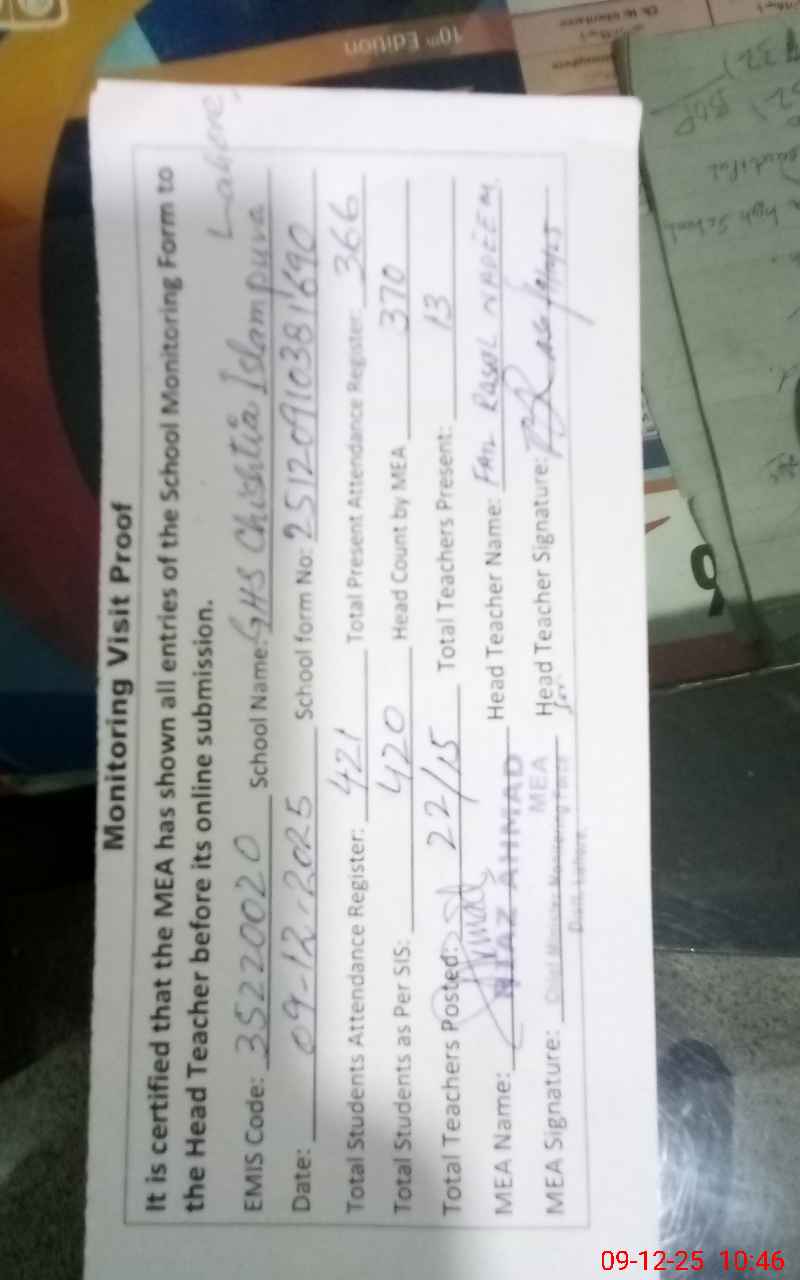 Monitoring Visit Proof
It is certified that the MEA has shown all entries of the School Monitoring Form to
the Head Teacher before its online submission.
Lahore.
EMIS Code: 35220020 School Name: GHS Chishtia Islampura
Date: 09-12-2025 School form No: 251209103811690
Total Students Attendance Register: 421 Total Present Attendance Register: 366
Total Students as Per SIS: 420 Head Count by MEA 370
Total Teachers Posted: 22/15 Total Teachers Present: 13
MEA Name: NIAZ AHMAD Head Teacher Name: RASOL NADEEM
MEA
MEA Signature: Chief Minister Monitoring Force Head Teacher Signature:
for
Distt. Lahore.
10th Edition
9
high School
09-12-25 10:46